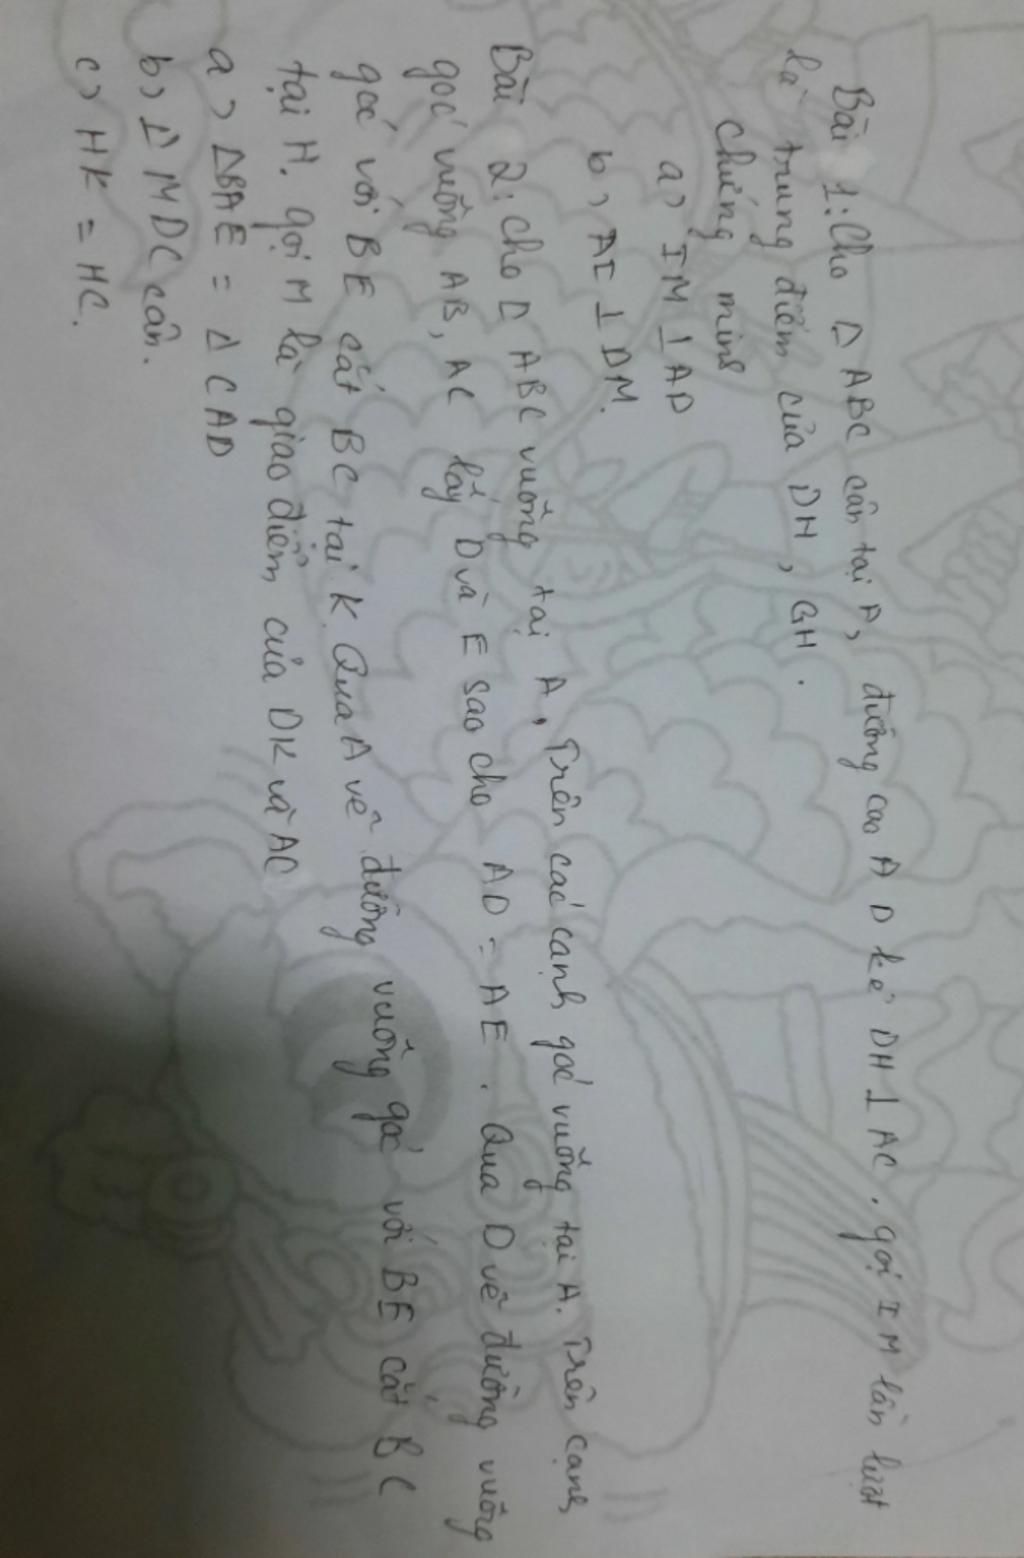 Bài 1: Cho Δ ABC cân tại A, đường cao A D kẻ DH ⊥ AC. gọi I M lần lượt
là trung điểm của DH, GH.
Chứng minh
a> IM ⊥ AD
b> AI ⊥ DM.
Bài 2: Cho Δ ABC vuông tại A, Trên các cạnh góc vuông tại A. Trên cạnh
góc vuông AB, AC lấy D và E sao cho AD = AE. Qua D vẽ đường vuông
góc với BE cắt BC tại K. Qua A vẽ đường vuông góc với BE cắt BC
tại H. gọi M là giao điểm của DK và AC
a> ΔBAE = Δ CAD
b> Δ MDC cân.
c> HK = HC.